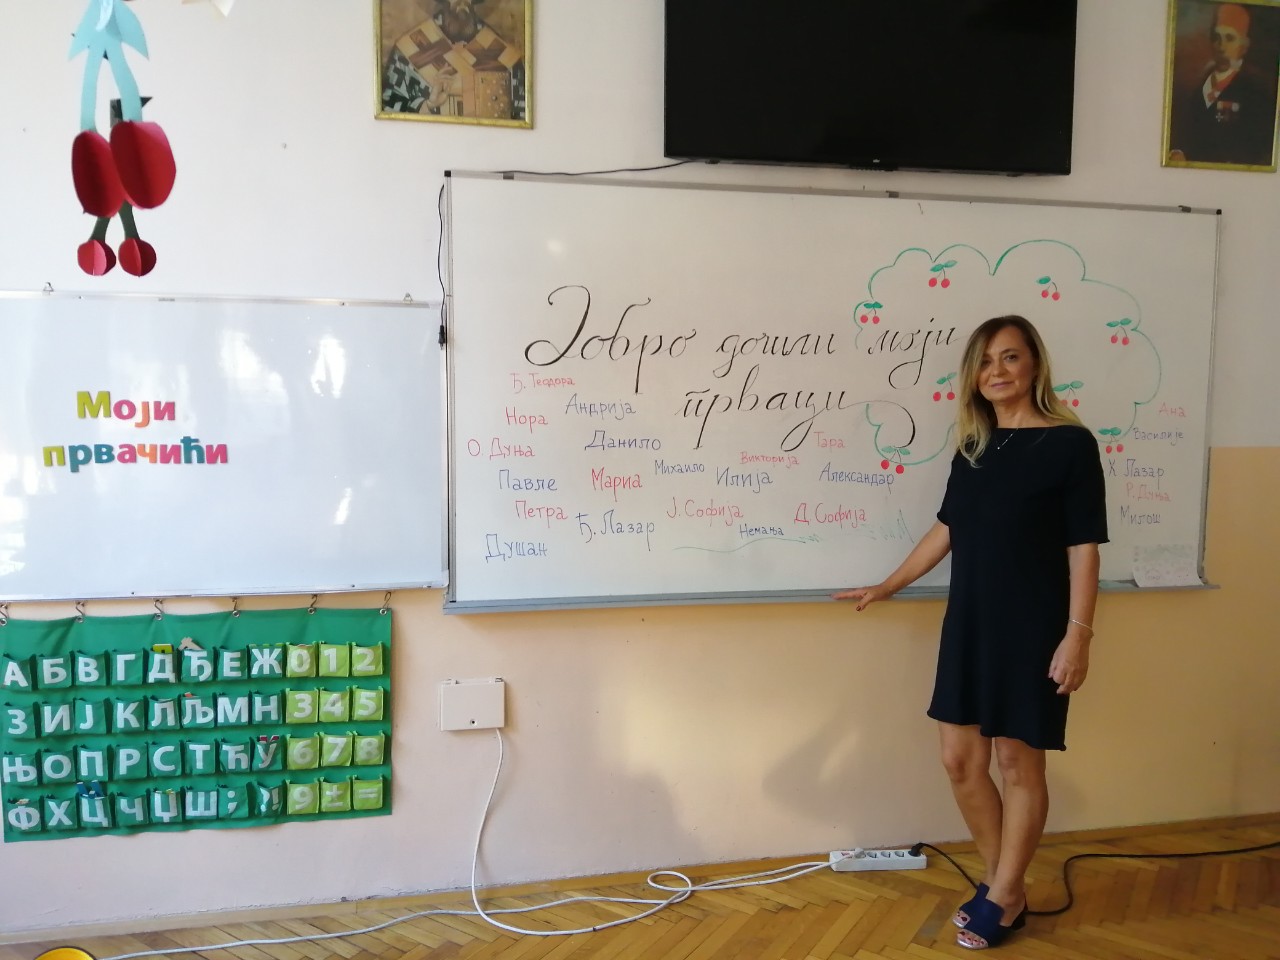 Моји
првачићи
Добро дошли моји
прваци
Ђ. Теодора
Нора
Андрија
О. Дуња
Данило
Тара
Павле
Мариа
Михаило
Викторија
Илија
Александар
Петра
Ђ. Лазар
Ј. Софија
Немања
Д. Софија
Душан
Ана
Василије
Х. Лазар
Р. Дуња
Милош
А Б В Г Д Ђ Е Ж 0 1 2
З И Ј К Л Љ М Н 3 4 5
Њ О П Р С Т Ћ У 6 7 8
Ф Х Ц Ч Џ Ш ; ?! 9 ± =